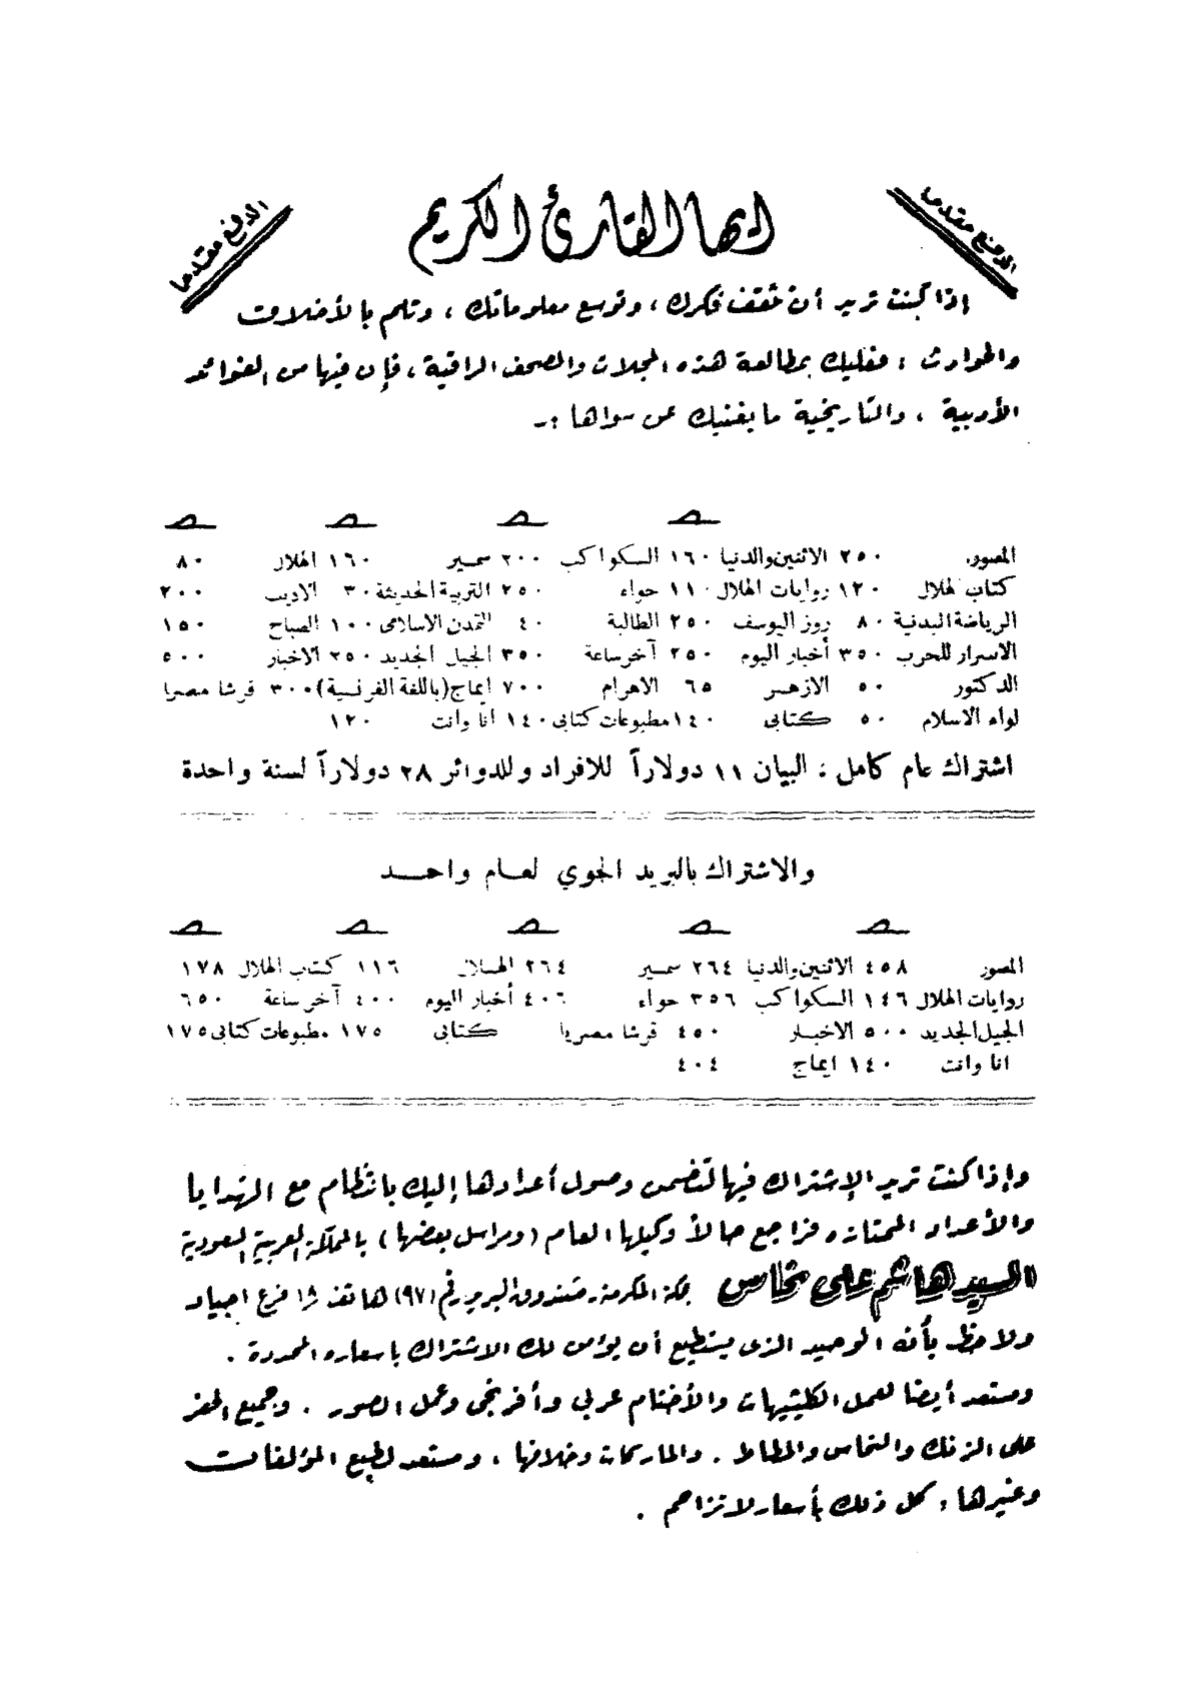 الدفع مقدما
ايها القارئ الكريم
الدفع مقدما
إذا كنت تريد أن تثقف فكرك ، وتوسع معلوماتك ، وتلم بالأخلاق
والحوادث ، فعليك بمطالعة هذه المجلات والصحف الراقية ، فإن فيها من الفوائد
الأدبية ، والتاريخية ما يغنيك عن سواها :ـ
المصور ٢٥٠ الاثنين والدنيا ١٦٠ الكواكب ٢٠٠ سمير ١٦٠ الهلال ٨٠
كتاب الهلال ١٢٠ روايات الهلال ١١٠ حواء ٢٥٠ التربية الحديثة ٣٠ الاديب ٢٠٠
الرياضة البدنية ٨٠ روز اليوسف ٢٥٠ الطالبة ٤٠ التمدن الاسلامى ١٠٠ الصباح ١٥٠
الاسرار للحرب ٣٥٠ أخبار اليوم ٢٥٠ آخر ساعة ٣٥٠ الجيل الجديد ٢٥٠ الاخبار ٥٠٠
الدكتور ٥٠ الازهر ٦٥ الاهرام ٧٠٠ ايماج (باللغة الفرنسية) ٣٠٠ قرشا مصريا
لواء الاسلام ٥٠ كتابى ١٤٠ مطبوعات كتابى ١٤٠ انا وانت ١٢٠
اشتراك عام كامل : البيان ١١ دولاراً للافراد وللدوائر ٢٨ دولاراً لسنة واحدة
والاشتراك بالبريد الجوي لعام واحد
المصور ٤٥٨ الاثنين والدنيا ٢٦٤ سمير ٢٦٤ الهلال ١١٦ كتاب الهلال ١٧٨
روايات الهلال ١٤٦ الكواكب ٣٥٦ حواء ٤٠٦ أخبار اليوم ٤٠٠ آخر ساعة ٦٥٠
الجيل الجديد ٥٠٠ الاخبار ٤٥٠ قرشا مصريا كتابى ١٧٥ مطبوعات كتابى ١٧٥
انا وانت ١٤٠ ايماج ٤٠٤
وإذا كنت تريد الإشتراك فيها لتضمن وصول أعدادها إليك بانتظام مع الهدايا
والأعداد الممتازه فراجع حالاً وكيلها العام (ومراسل بعضها) بالمملكة العربية السعودية
السيد هاشم على نحاس بمكة المكرمة . صندوق البريد رقم (٩٧) هاتف فرع اجياد
ولاحظ بأنه الوحيد الذى يستطيع أن يؤمن لك الاشتراك باسعاره المحددة .
ومستعد أيضا لعمل الكليشيهات والأختام عربي وأفرنجى وعمل الصور . وجميع الحفر
على الزنك والنحاس والمطاط . والماركات وخلافها ، ومستعد لطبع المؤلفات
وغيرها ، كل ذلك بأسعار لا تزاحم .